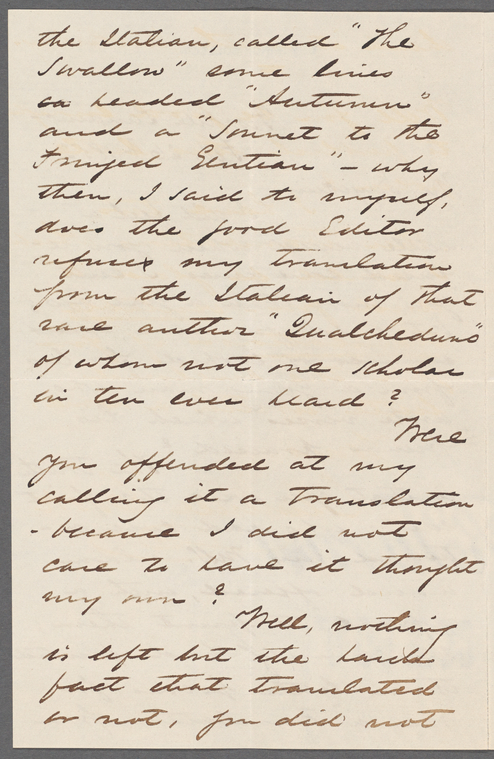 the Italian, called "The
Swallow" some lines
so headed "Autumn"
and a "Sonnet to the
Fringed Gentian" – why
then, I said to myself,
does the good Editor
refuses my translation
from the Italian of that
rare author "Qualcheduno"
of whom not one scholar
in ten ever heard?
Were
you offended at my
calling it a translation
- because I did not
care to have it thought
my own?
Well, nothing
is left but the hard
fact that translated
or not, you did not